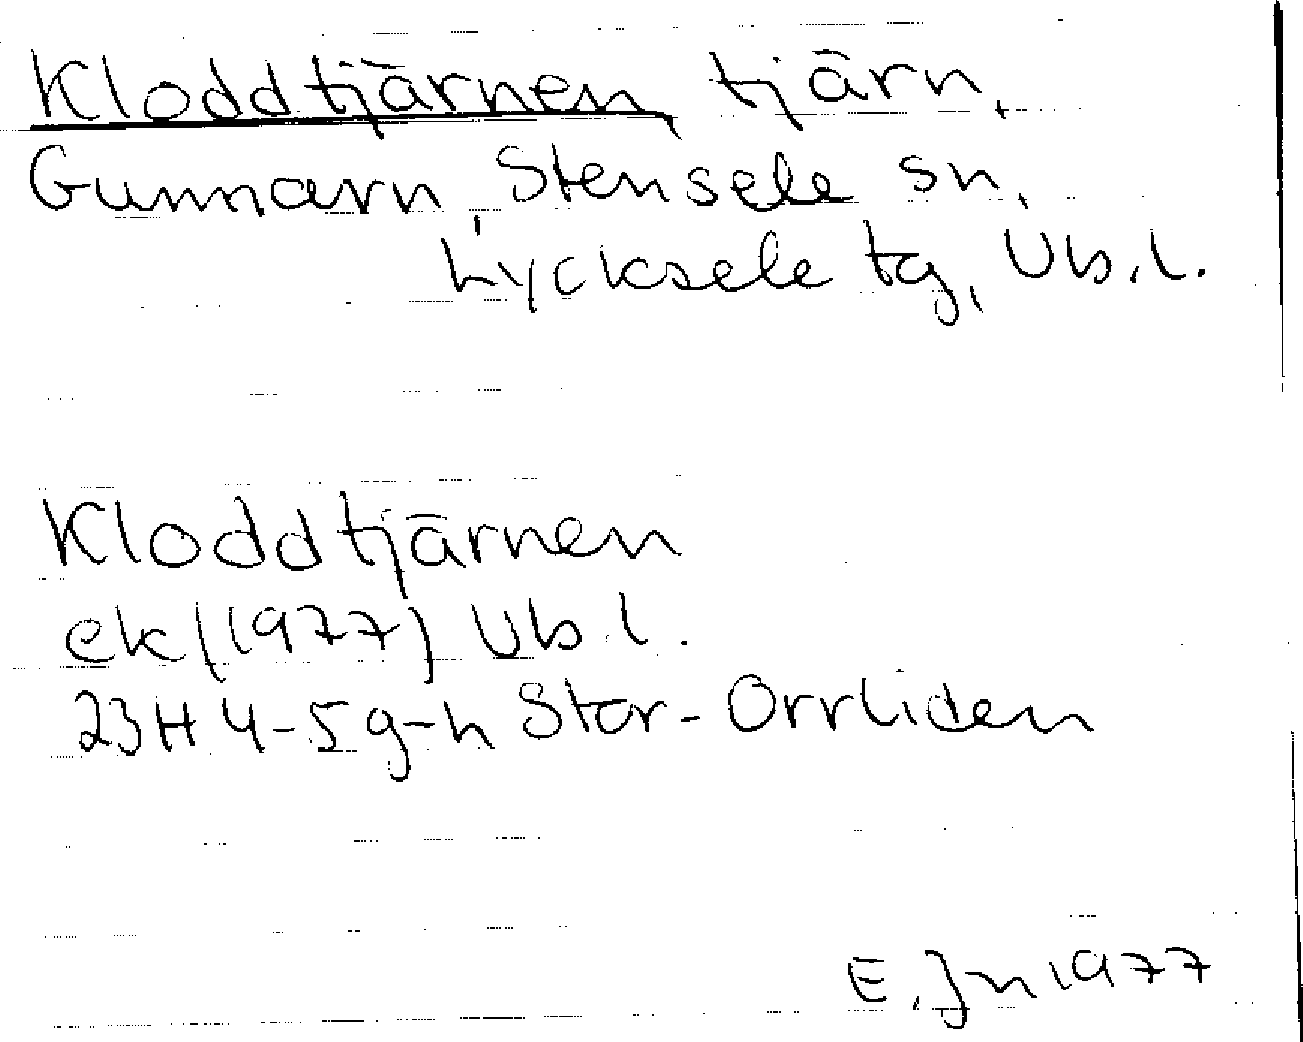 Kloddtjärnen, tjärn,
Gunnarn, Stensele sn,
Lycksele tg, Vb.l.
Kloddtjärnen
ek (1977) Vb l.
23H 4-5 g-h Stor-Orrliden
E. Jn 1977